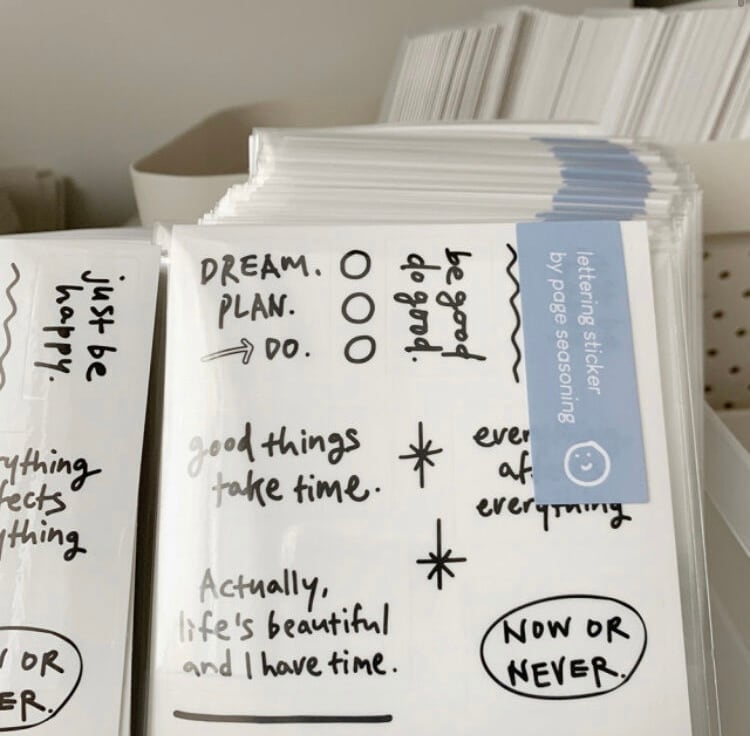 just be
happy.
DREAM.
PLAN.
DO.
be good
do good.
lettering sticker
by page seasoning
good things
take time.
everything
Actually,
life's beautiful
and I have time.
NOW OR
NEVER.
ything
fects
ything
OR
ER.